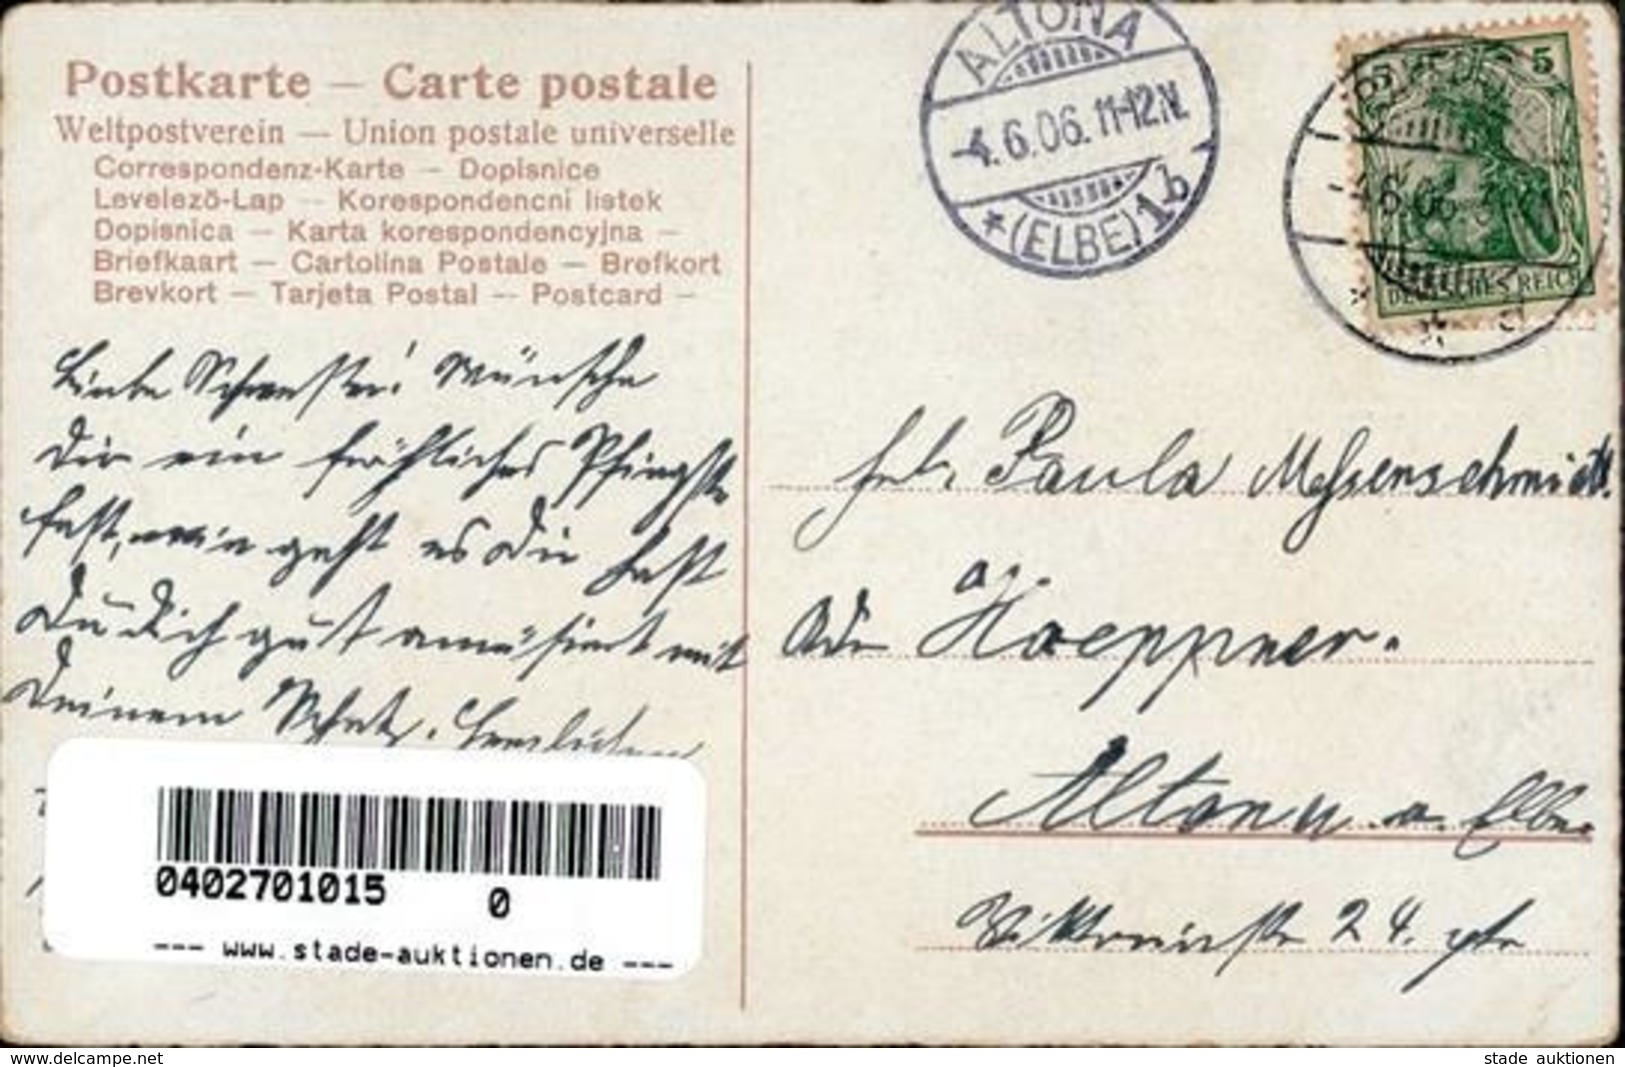 Postkarte — Carte postale
Weltpostverein — Union postale universelle
Correspondenz-Karte — Dopisnice
Levelező-Lap — Korespondencni listek
Dopisnica — Karta korespondencyjna —
Briefkaart — Cartolina Postale — Brefkort
Brevkort — Tarjeta Postal — Postcard —
ALTONA
4.6.06. 11-12N.
* (ELBE) 1b
5
4.6.06
DEUTSCHES REICH
Liebe Schwester! Wünsche
Dir ein fröhliches Pfingst
fest, wie geht es Dir hast
Du Dich gut amüsiert mit
Deinem Schatz. Herzlichen
Frl. Paula Messenschmidt.
Adr Hoeppner.
Altona a. Elbe.
Viktoriastr 24. ptr
0402701015 0
--- www.stade-auktionen.de ---
www.delcampe.net
stade auktionen